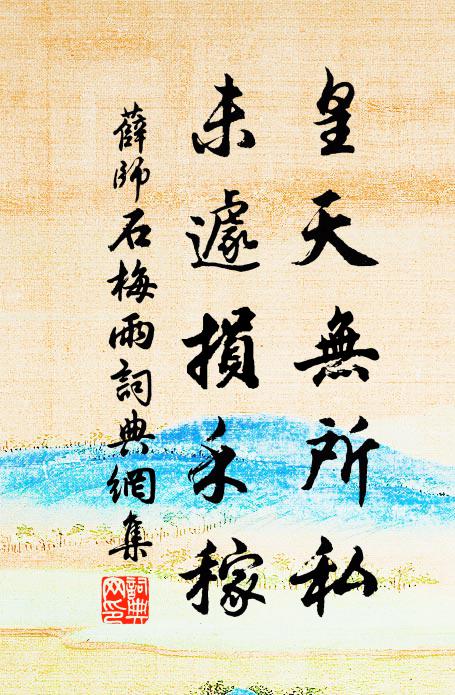 皇天無所私
未遽損禾稼
薛師石梅雨詞典網集
詞典网印